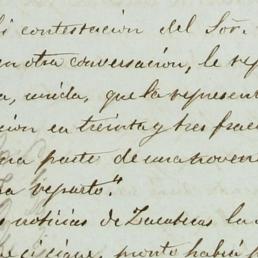 i contestación del Sór.
en otra conversación, le rep
a, unida, que la represent
ción en treinta y tres frac
una parte de una noven
ra reparto."
s noticias de Zacatecas la
pronto habia